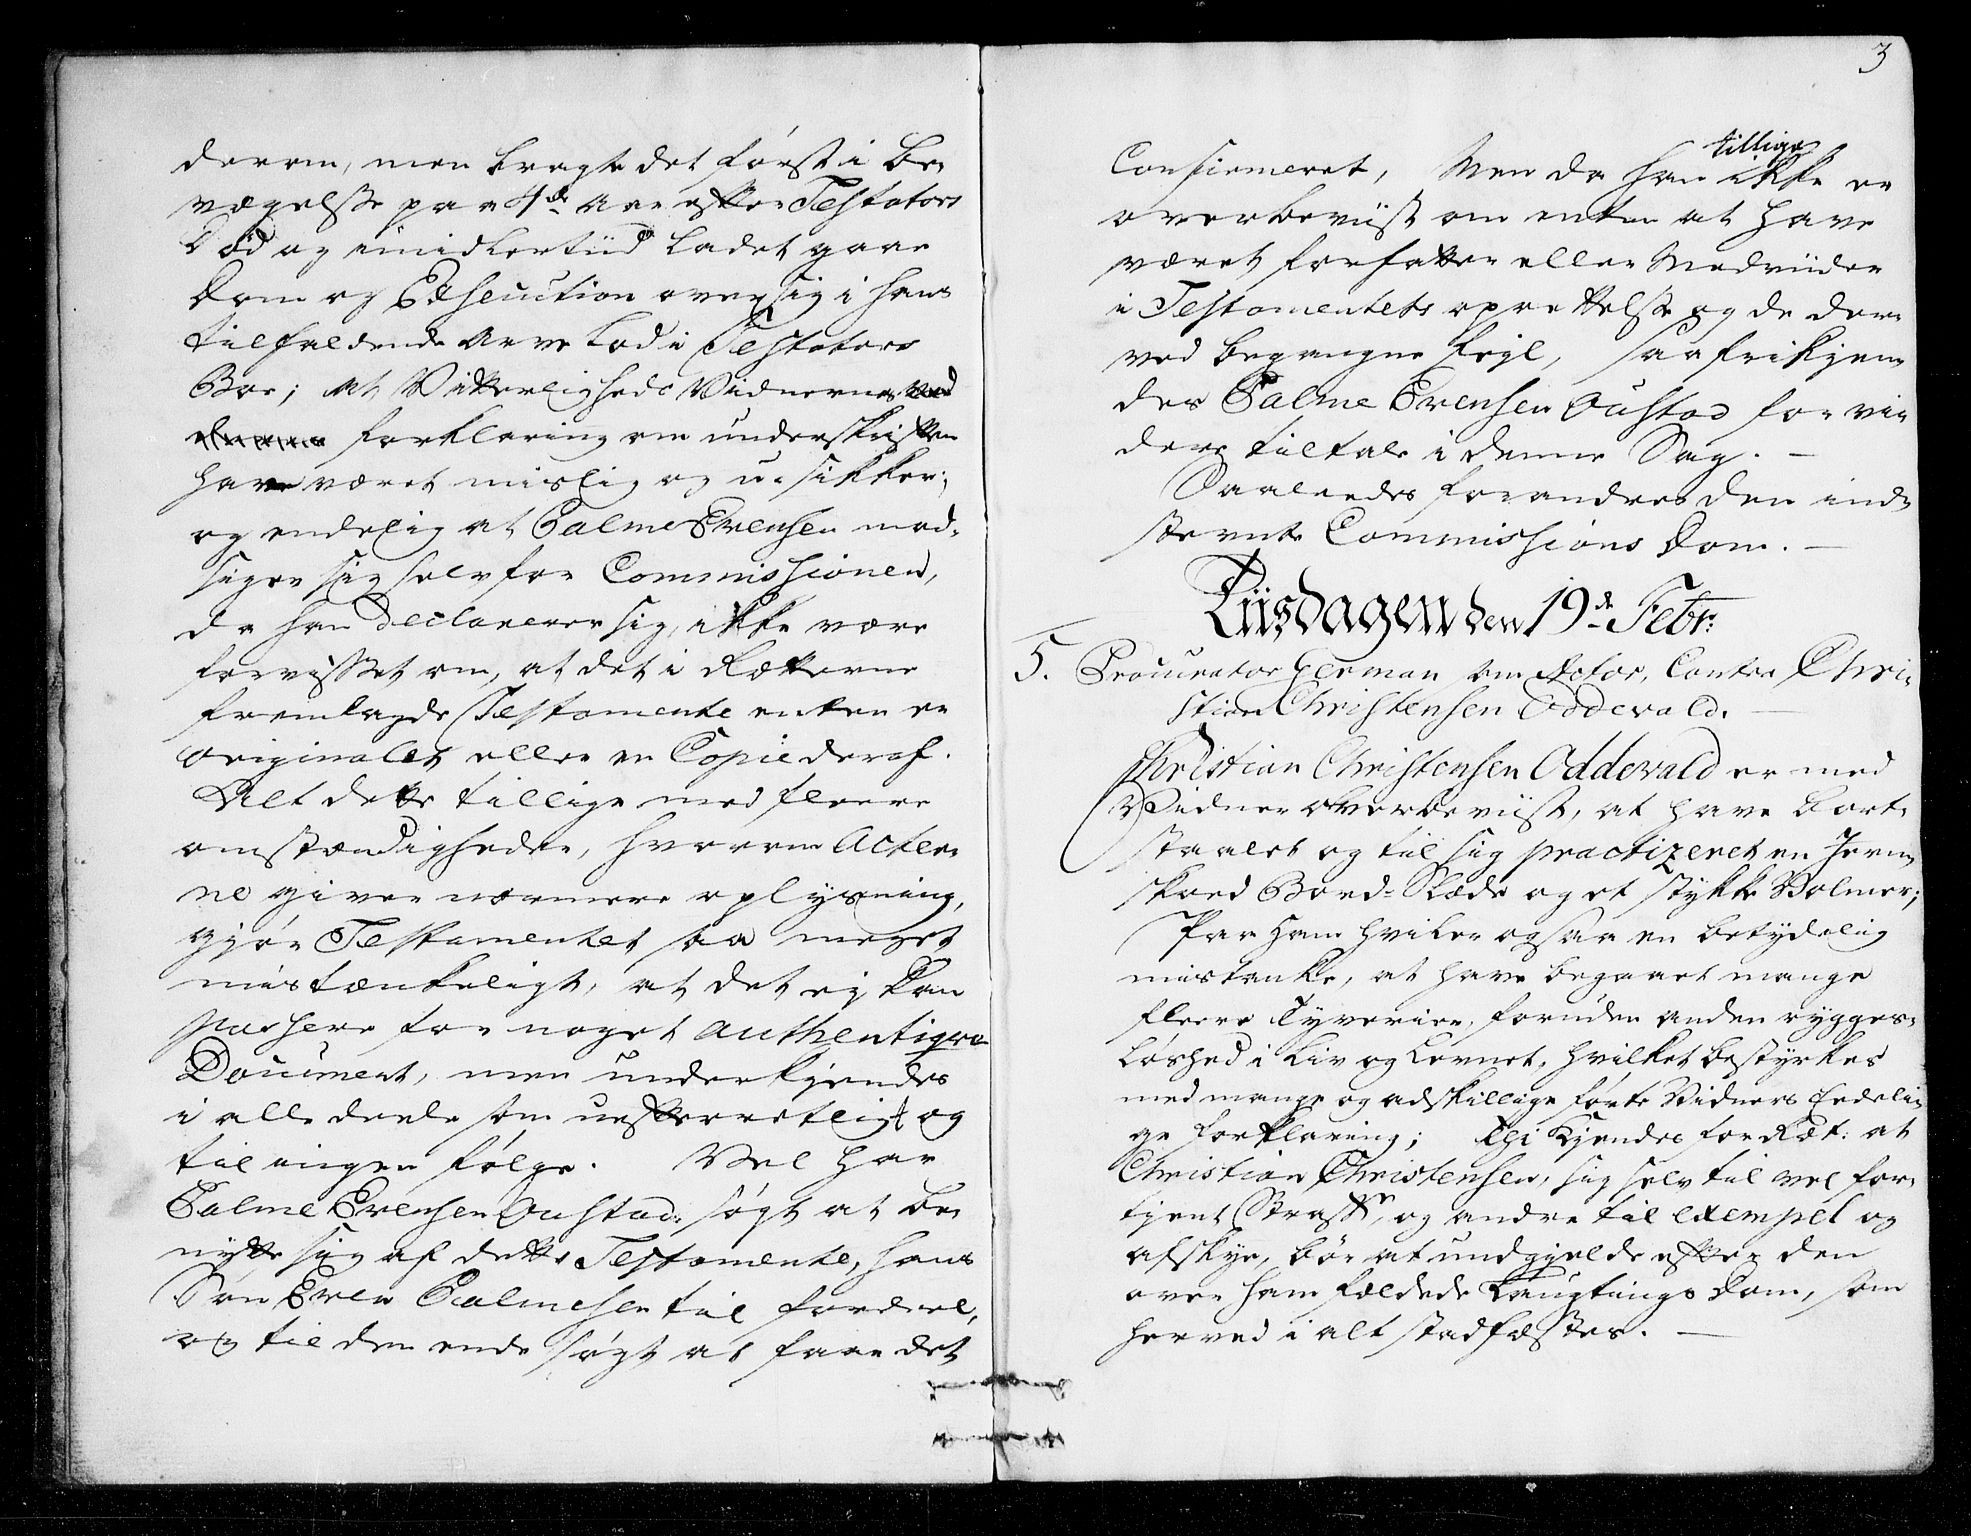 derom, men bragte det først i be-
vægelse paa 4de Aar efter Testators
Død og imidlertiid ladet gaae
Dom og Execution over sig i hans
tilfaldende Arve Lod i Testators
Boe; at Vitterligheds Vidnernes
forklaring om underskriften
have været mislig og u-sikker;
og endelig at Palme Evensen mod-
siger sig selv for Commissionen,
da han declarerer sig, ikke være
forvisset om, at det i Rætterne
fremlagde Testamente enten er
originalet eller en Copie deraf.
Alt dette tillige med fleere
omstændigheder, hvorom Acter-
ne giver nærmere oplysning,
gjør Testamentet saa meget
mistænkeligt, at det ej kan
passere for noget authentiqve
Document, men underkjendes
i alle deele som uefterretligt og
til ingen følge. Vel har
Palme Evensen Oustad søgt at be-
nytte sig af dette Testamente, hans
Søn Even Palmesen til fordeel,
og til den ende søgt at faae det
3
Confirmeret, Men da han tillige ikke er
overbeviist om enten at have
været forfatter eller Medviider
i Testamentets oprettelse og de der-
ved begangne feyl, saa frikjen-
des Palme Evensen Oustad for vi-
dere tiltale i denne Sag. —
Saaledes forandres den ind-
stevnte Commissions Dom. —
Tiisdagen den 19de Febr:
5. Procurator Herman Actor, Contra Chri-
stian Christensen Oddevald. —
Christian Christensen Oddevald er med
Vidner overbeviist, at have bort-
staalet og til sig practizeret en Jern-
skoed Bord-Slæde og et stykke Volmer;
Paa ham hviler ogsaa en betydelig
mistanke, at have begaaet mange
fleere Tyverier, foruden anden rygges-
løshed i Liv og Levnet, hvilket bestyrkes
med mange og adskillige førte Vidners Eedeli-
ge forklaring; Thi kjendes for Ræt: at
Christian Christensen, sig selv til vel for-
tjent Straff, og andre til exempel og
afskye, bør at undgjelde efter den
over ham fældede Laugtings Dom, som
herved i alt stadfæstes. —